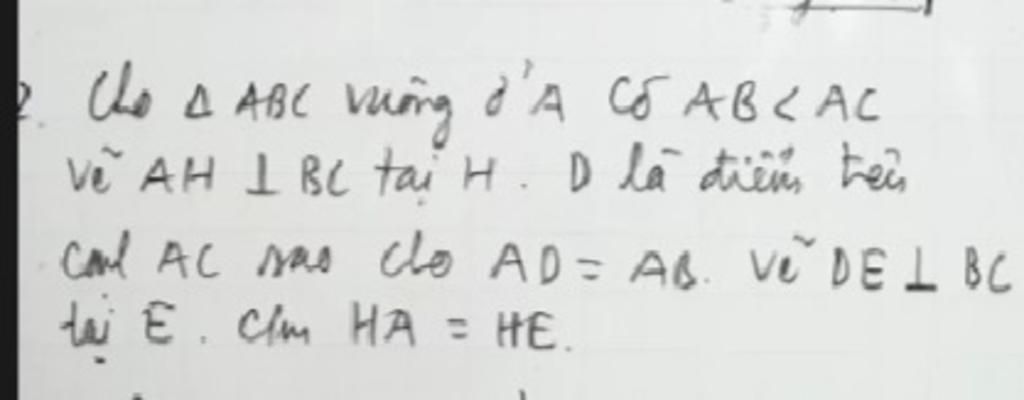 2. Cho Δ ABC vuông ở A Có AB < AC
vẽ AH ⊥ BC tại H. D là điểm trên
cạnh AC sao cho AD = AB. Vẽ DE ⊥ BC
tại E. C/m HA = HE.